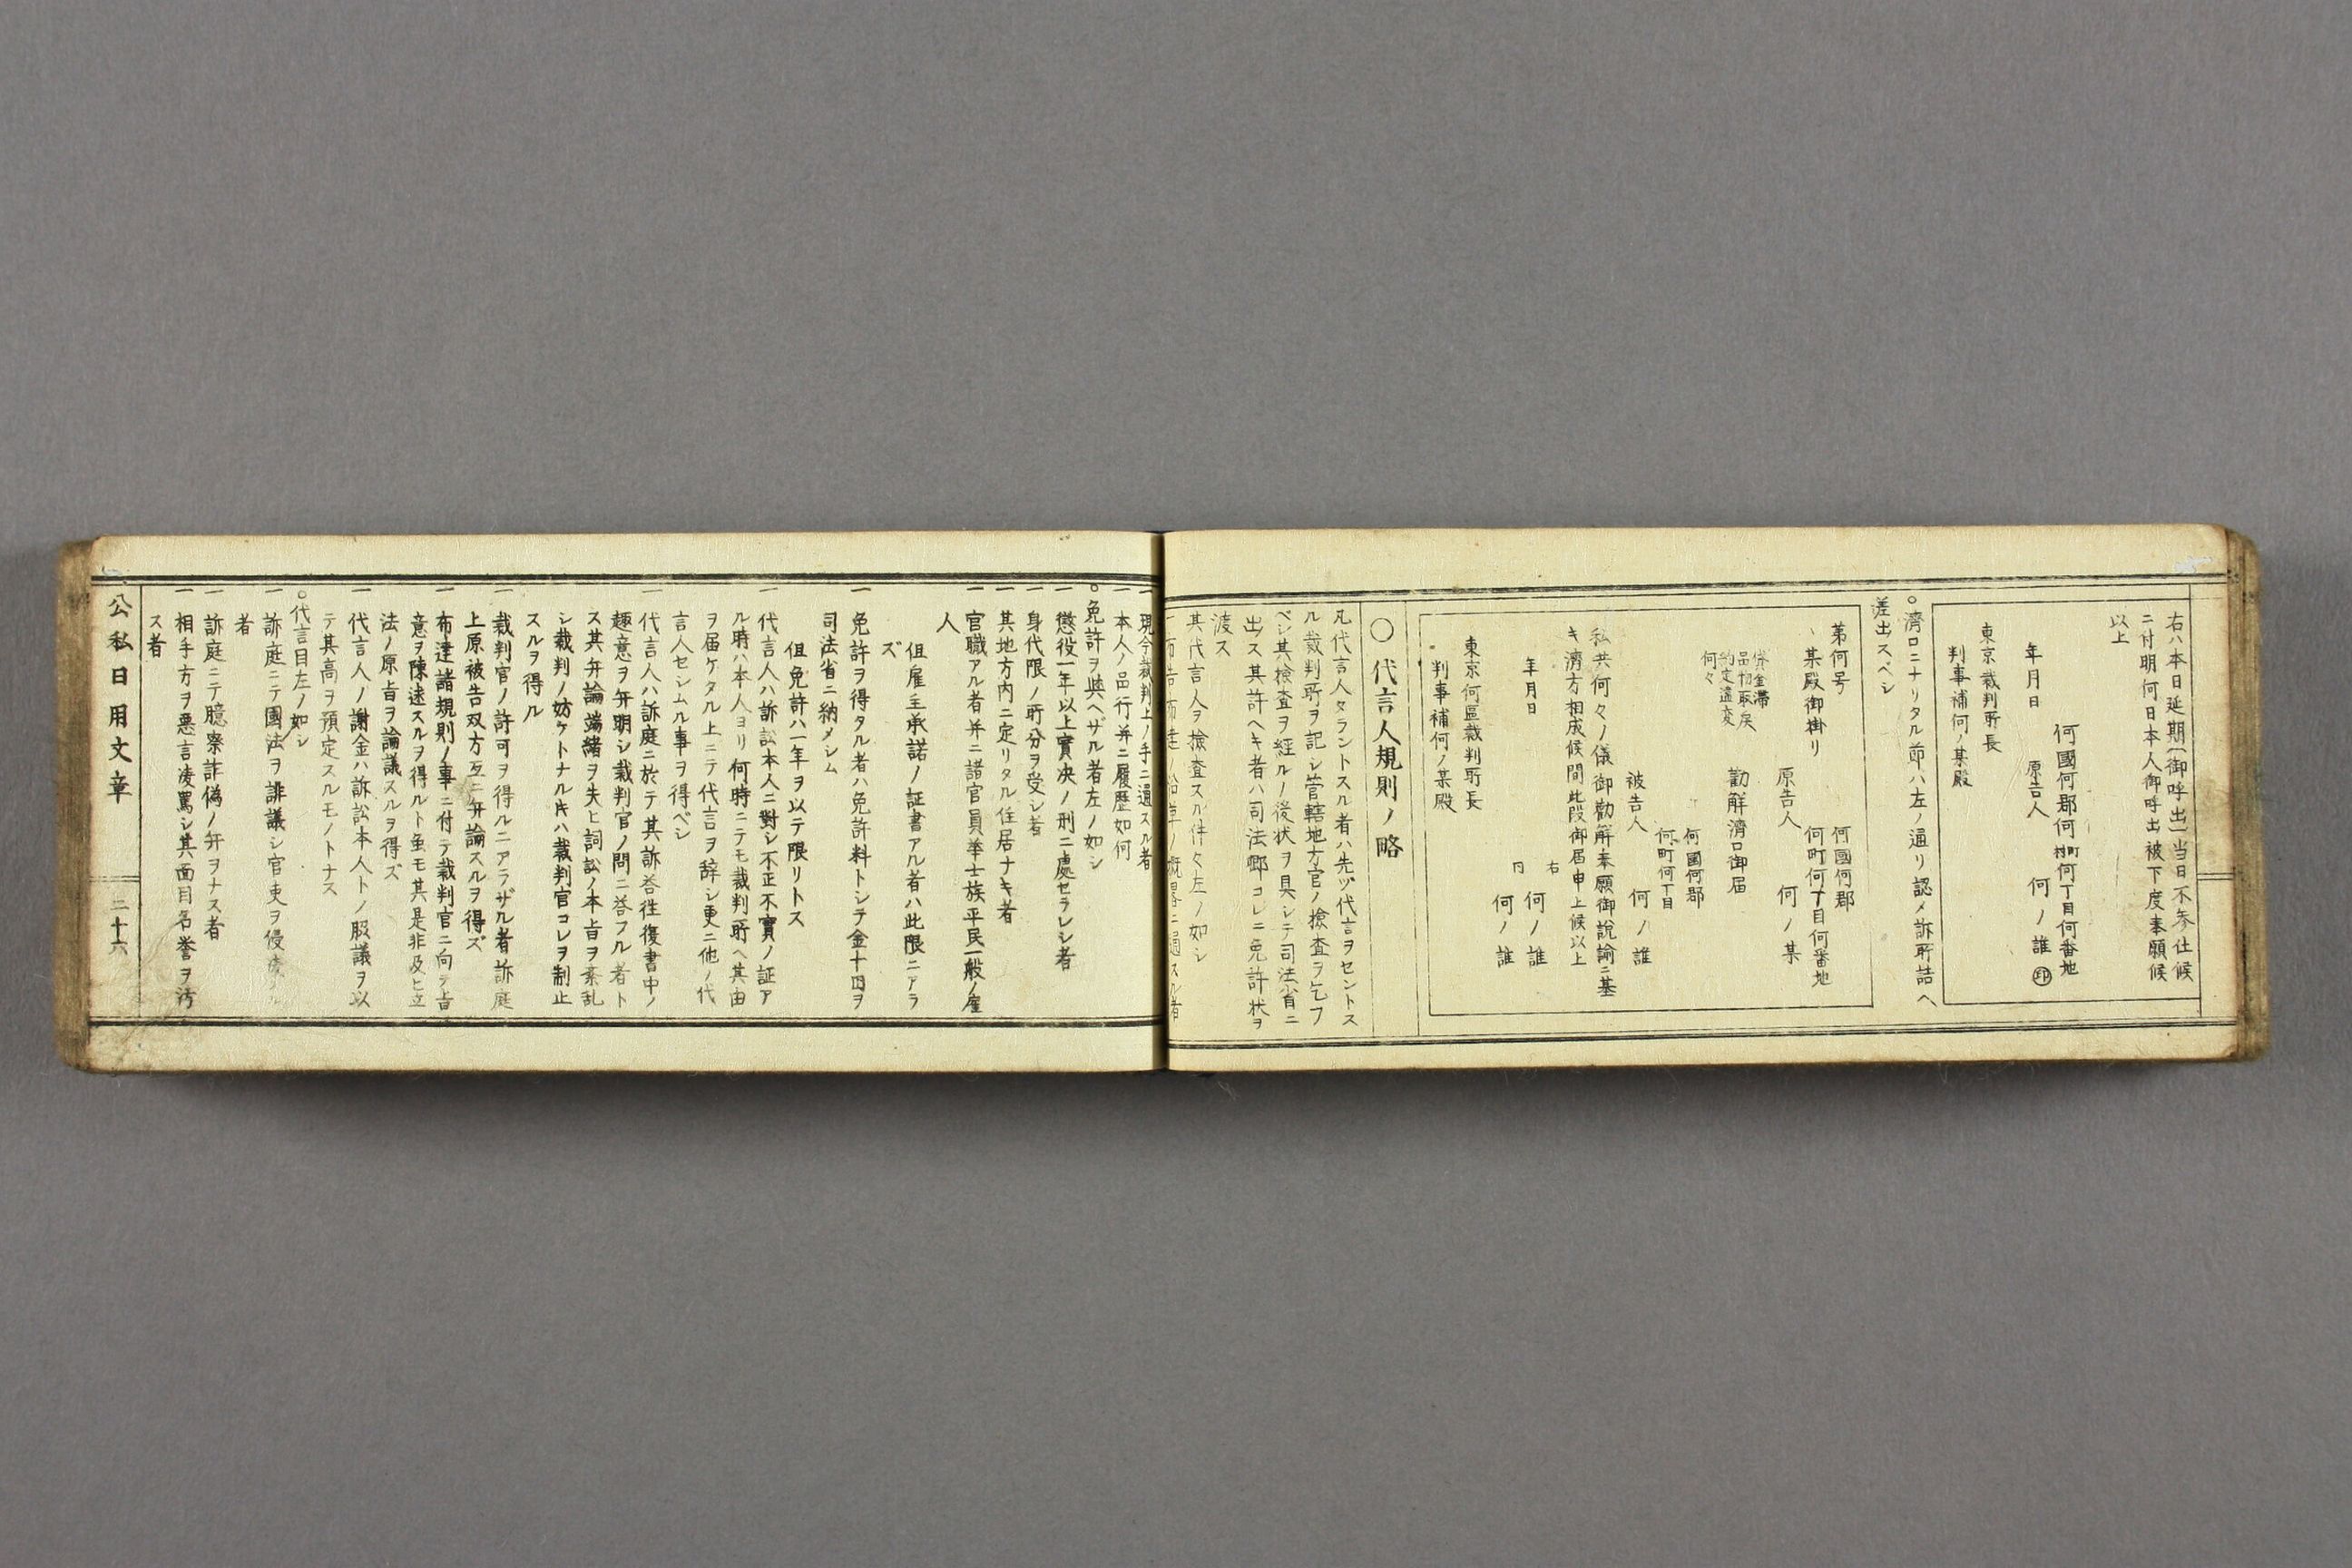 右ハ本日延期(御呼出)当日不参仕候
ニ付明何日本人御呼出被下度奉願候
以上
何國何郡何村町何丁目何番地
年月日 原告人 何ノ誰㊞
東京裁判所長
判事補何ノ某殿
○濟口ニナリタル節ハ左ノ通リ認メ訴所詰ヘ
差出スベシ
第何号 何國何郡
某殿御掛リ 何町何丁目何番地
原告人 何ノ某
貸金滞
品物取戻
約定違変
何々
勸解濟口御届
何國何郡
何町何丁目
被告人 何ノ誰
私共何々ノ儀御勸解奉願御説諭ニ基
キ濟方相成候間此段御届申上候以上
右
年月日 何ノ誰
何ノ誰
東京何區裁判所長
判事補何ノ某殿
○代言人規則ノ略
凡代言人タラントスル者ハ先ヅ代言ヲセントス
ル裁判所ヲ記シ管轄地方官ノ檢査ヲ乞フ
ベシ其檢査ヲ經ルノ後状ヲ具シテ司法省ニ
出ス其許ヘキ者ハ司法卿コレニ免許状ヲ
渡ス
其代言人ヲ撿査スル件々左ノ如シ
一布告布達ノ沿革ノ概畧ニ通スル者
一現今裁判上ノ手ニ通スル者
一本人ノ品行并ニ履歴如何
○免許ヲ與ヘザル者左ノ如シ
一懲役一年以上實决ノ刑ニ處セラレシ者
一身代限ノ所分ヲ受シ者
一其地方内ニ定リタル住居ナキ者
一官職アル者并ニ諸官員華士族平民一般ノ雇
人
但雇主承諾ノ証書アル者ハ此限ニアラ
ズ
一免許ヲ得タル者ハ免許料トシテ金十四ヲ
司法省ニ納メシム
但免許ハ一年ヲ以テ限リトス
一代言人ハ訴訟本人ニ對シ不正不實ノ証ア
ル時ハ本人ヨリ何時ニテモ裁判所ヘ其由
ヲ届ケタル上ニテ代言ヲ辞シ更ニ他ノ代
言人セシムル事ヲ得ベシ
一代言人ハ訴庭ニ於テ其訴答往復書中ノ
趣意ヲ弁明シ裁判官ノ問ニ答フル者ト
ス其弁論端緒ヲ失ヒ詞訟ノ本旨ヲ紊乱
シ裁判ノ妨ケトナル𪜈ハ裁判官コレヲ制止
スルヲ得ル
一裁判官ノ許可ヲ得ルニアラザル者訴庭
上原被告双方互ニ弁論スルヲ得ズ
一布達諸規則ノ事ニ付テ裁判官ニ向テ旨
意ヲ陳述スルヲ得ルト虽モ其是非及ヒ立
法ノ原旨ヲ論議スルヲ得ズ
一代言人ノ謝金ハ訴訟本人トノ服議ヲ以
テ其高ヲ預定スルモノトナス
○代言目左ノ如シ
一訴庭ニテ國法ヲ誹議シ官吏ヲ侵凌ノル
者
一訴庭ニテ臆察詐偽ノ弁ヲナス者
一相手方ヲ悪言凌罵シ其面目名誉ヲ汚
ス者
公私日用文章 二十六